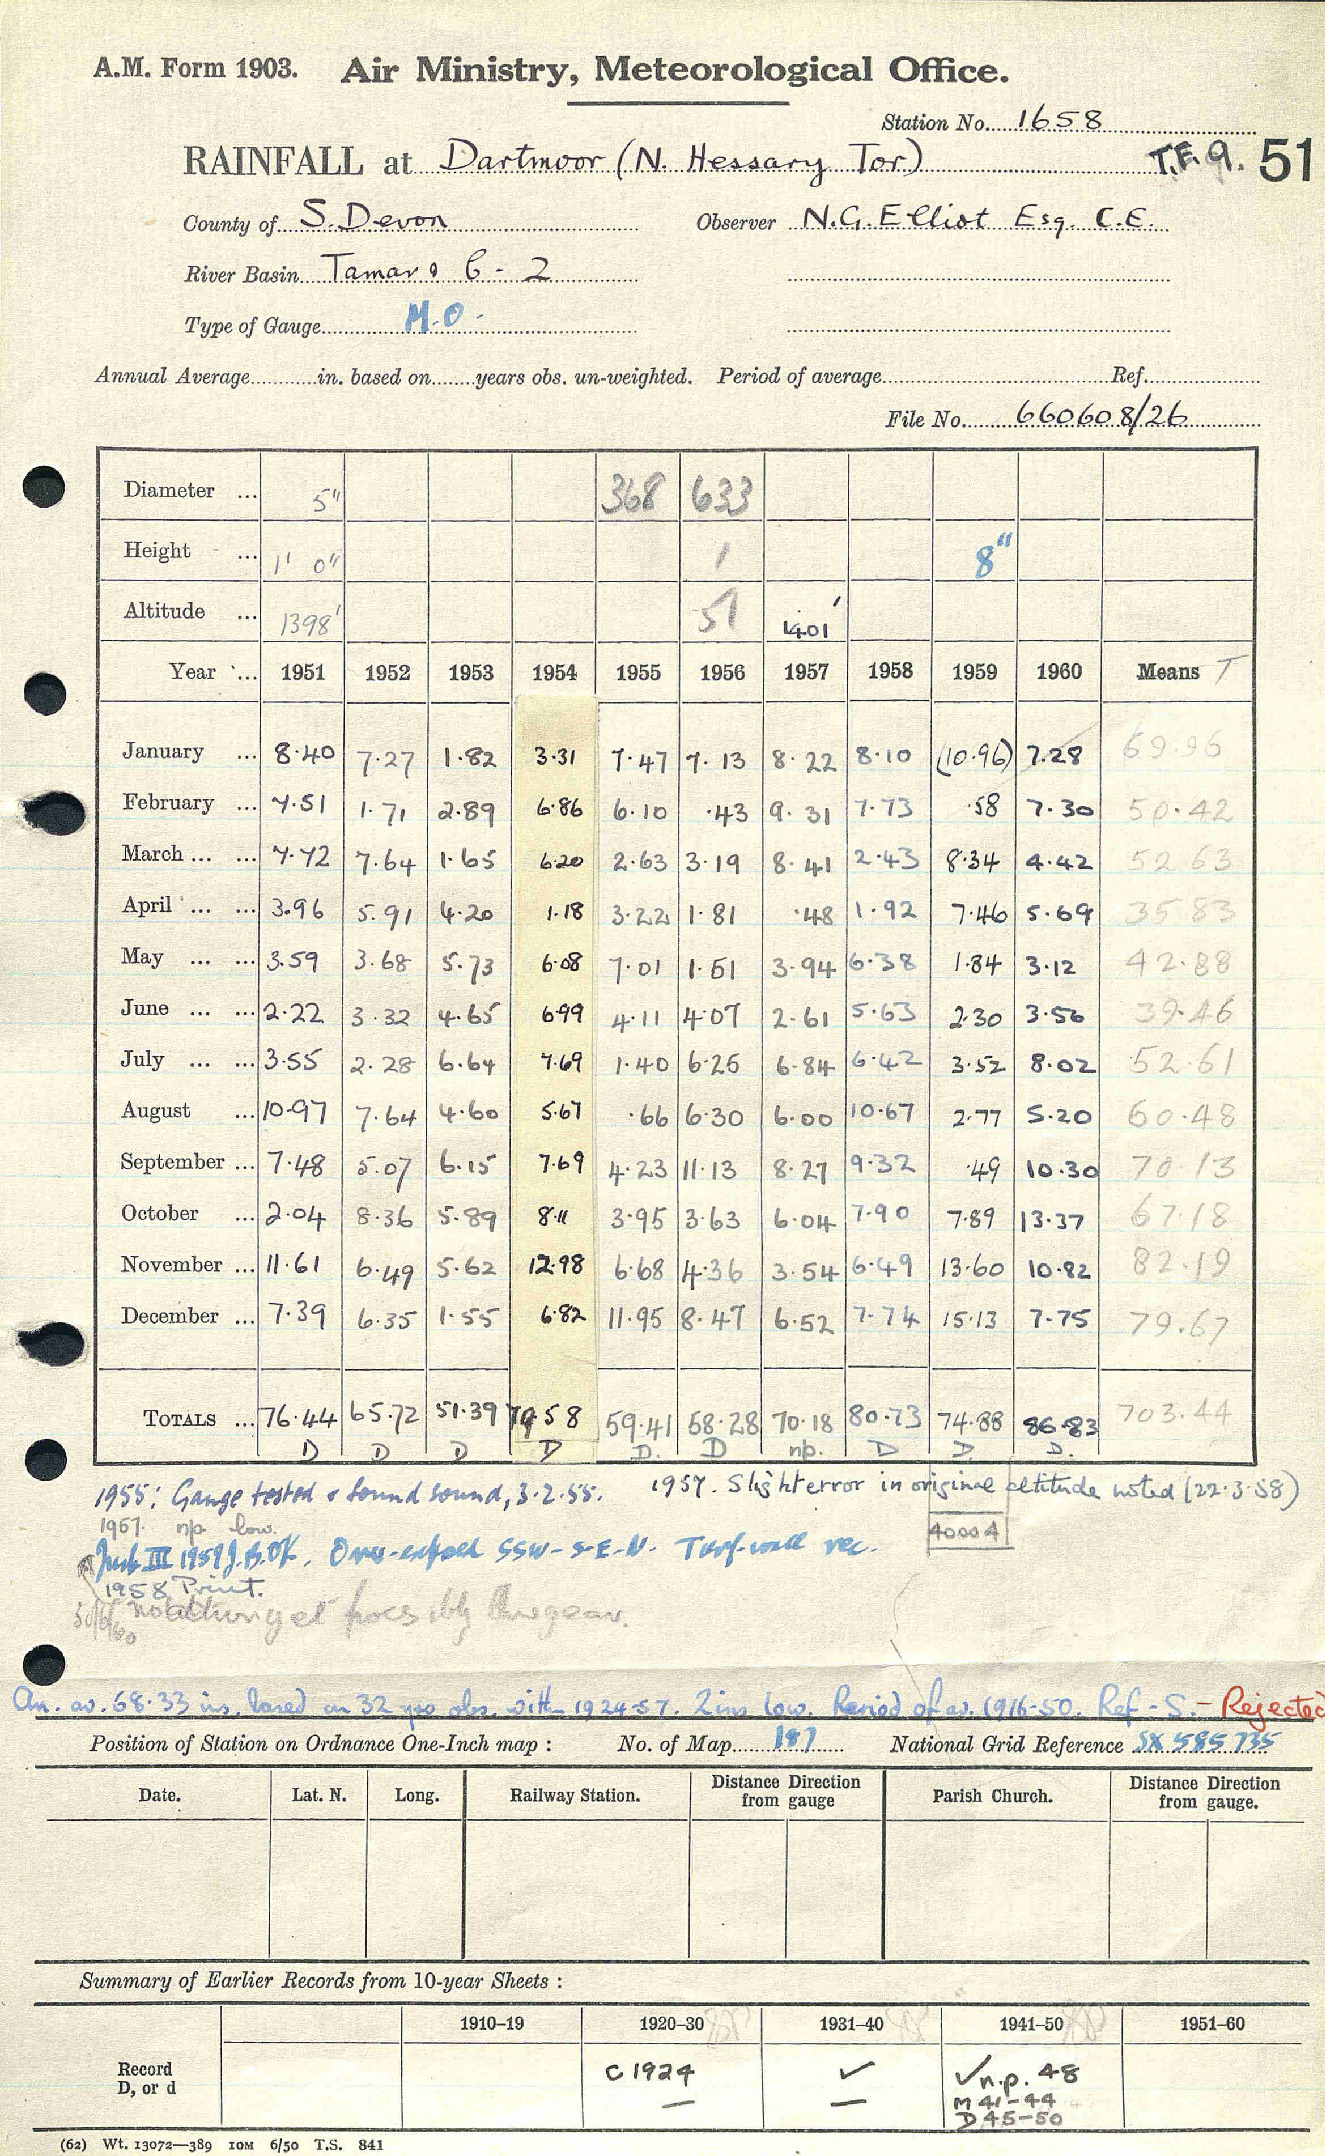 A.M. Form 1903. Air Ministry, Meteorological Office.
Station No. 1658
RAINFALL at Dartmoor (N. Hessary Tor) T.F.9. 51
County of S. Devon Observer N.G. Elliot Esq. C.E.
River Basin Tamar 6 - 2
Type of Gauge M.O.
Annual Average in. based on years obs. un-weighted. Period of average Ref.
File No. 660608/26
Diameter ... 5" 368 633
Height ... 1' 0" 1 8"
Altitude ... 1398' 51 1401'
Year ... 1951 1952 1953 1954 1955 1956 1957 1958 1959 1960 Means T
January ... 8.40 7.27 1.82 3.31 7.47 7.13 8.22 8.10 (10.96) 7.28 69.96
February ... 7.51 1.71 2.89 6.86 6.10 .43 9.31 7.73 .58 7.30 50.42
March ... ... 7.72 7.64 1.65 6.20 2.63 3.19 8.41 2.43 8.34 4.42 52.63
April ... ... 3.96 5.91 4.20 1.18 3.22 1.81 .48 1.92 7.46 5.69 35.83
May ... ... 3.59 3.68 5.73 6.08 7.01 1.51 3.94 6.38 1.84 3.12 42.88
June ... ... 2.22 3.32 4.65 6.99 4.11 4.07 2.61 5.63 2.30 3.56 39.46
July ... ... 3.55 2.28 6.64 7.69 1.40 6.25 6.84 6.42 3.52 8.02 52.61
August ... 10.97 7.64 4.60 5.67 .66 6.30 6.00 10.67 2.77 5.20 60.48
September ... 7.48 5.07 6.15 7.69 4.23 11.13 8.27 9.32 .49 10.30 70.13
October ... 2.04 8.36 5.89 8.11 3.95 3.63 6.04 7.90 7.89 13.37 67.18
November ... 11.61 6.49 5.62 12.98 6.68 4.36 3.54 6.49 13.60 10.82 82.19
December ... 7.39 6.35 1.55 6.82 11.95 8.47 6.52 7.74 15.13 7.75 79.67
TOTALS ... 76.44 65.72 51.39 79.58 59.41 58.28 70.18 80.73 74.88 86.83 703.44
D D D D D. D np. D D. D.
1955: Gauge tested & found sound, 3.2.55. 1957. Slight error in original altitude noted (22.3.58)
1957. np low.
40004
III 1959 Over-exposed SSW-S-E-N. Turf-wall rec.
1958 Print.
possibly
An. av. 68.33 ins. based on 32 yrs obs. with 1924-57. 2ins low. Period of av. 1916-50. Ref - S. - Rejected
Position of Station on Ordnance One-Inch map : No. of Map 187 National Grid Reference SX 585 735
Date. Lat. N. Long. Railway Station. Distance from gauge Direction Parish Church. Distance from gauge. Direction
Summary of Earlier Records from 10-year Sheets :
1910-19 1920-30 1931-40 1941-50 1951-60
Record D, or d C 1924 — ✓ — ✓ n.p. 48
M 41-44
D 45-50
(62) Wt. 13072—389 10M 6/50 T.S. 841